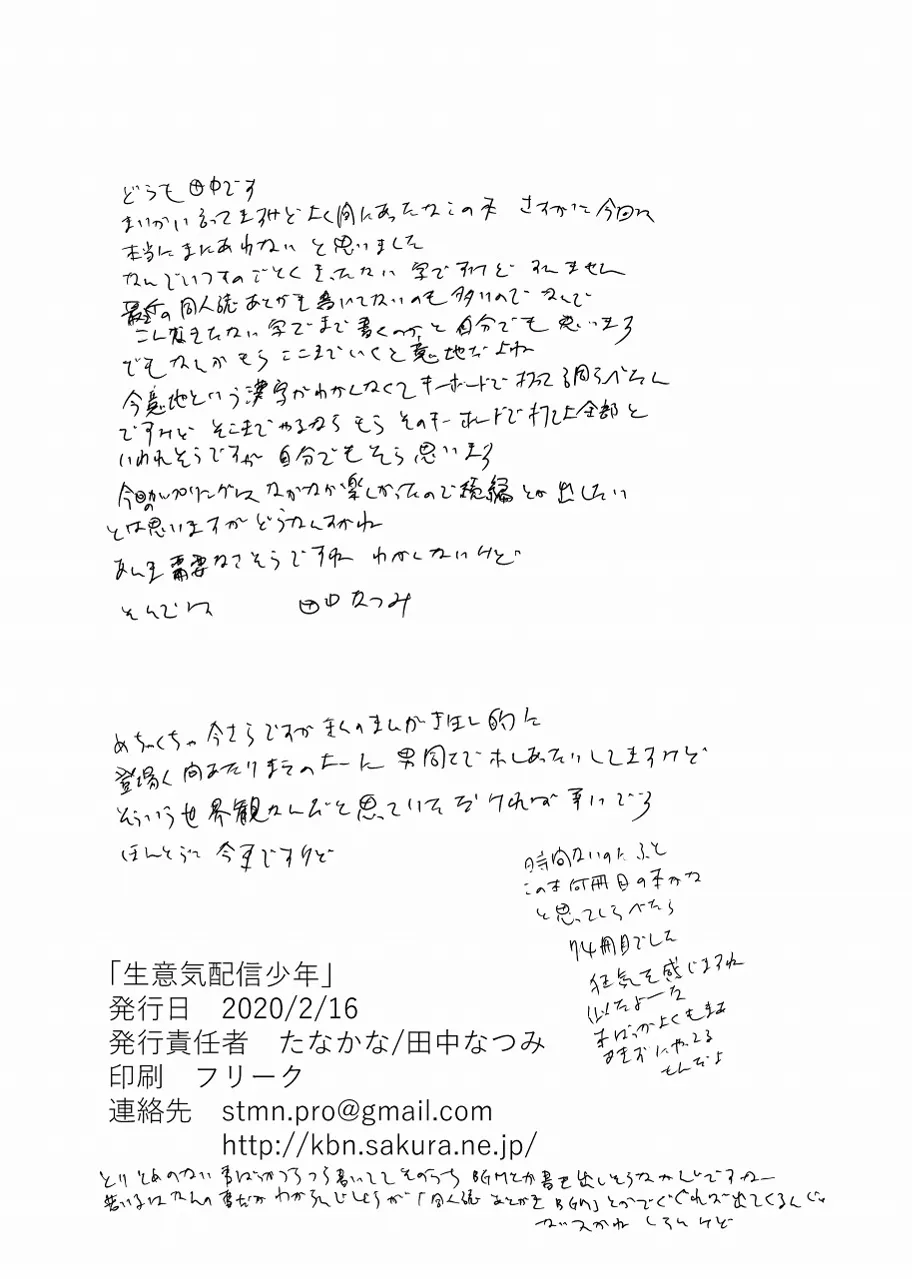 どうも田中です
まいかい言ってますけどよく間にあったなこの本 さすがに今回は
本当にまにあわないと思いました
なんでいつものごとくきったない字ですけどすいません
最近の同人誌あとがき書いてないのも多いのでなんで
こんなきたない字でまで書くのかと自分でも思います
でもなんかもうここまでいくと意地だよね
今意地という漢字がわかんなくてキーボードで打って調べたん
ですけど そこまでやるなら もう そのキーボードで打てよ全部と
いわれそうですが 自分でもそう思います
今回のカップリングは なかなか楽しかったので続編とか出したい
とは思いますがどうなんすかね
あんま需要なさそうですね わかんないけど
そんでは 田中なつみ
めちゃくちゃ今さらですがぼくのまんが
男同士で
そういう世界観なんだと思っていただければ幸いです
ほんとうに 今更ですけど
時間ないのにふと
この本何冊目の本かな
と思ってしらべたら
74冊目でした
狂気を感じますね
似たよーな
本ばっかよくもまあ
あきずにやってる
もんだよ
「生意気配信少年」
発行日 2020/2/16
発行責任者 たなかな/田中なつみ
印刷 フリーク
連絡先 stmn.pro@gmail.com
http://kbn.sakura.ne.jp/
とりとめのない事ばっかつらつら書いててそのうちBGMとか書き出しそうなかんじですねー
若い子はなんの事だかわからんでしょうが「同人誌 あとがき BGM」とかでぐぐれば出てくるんじゃ
ないっすかね しらんけど